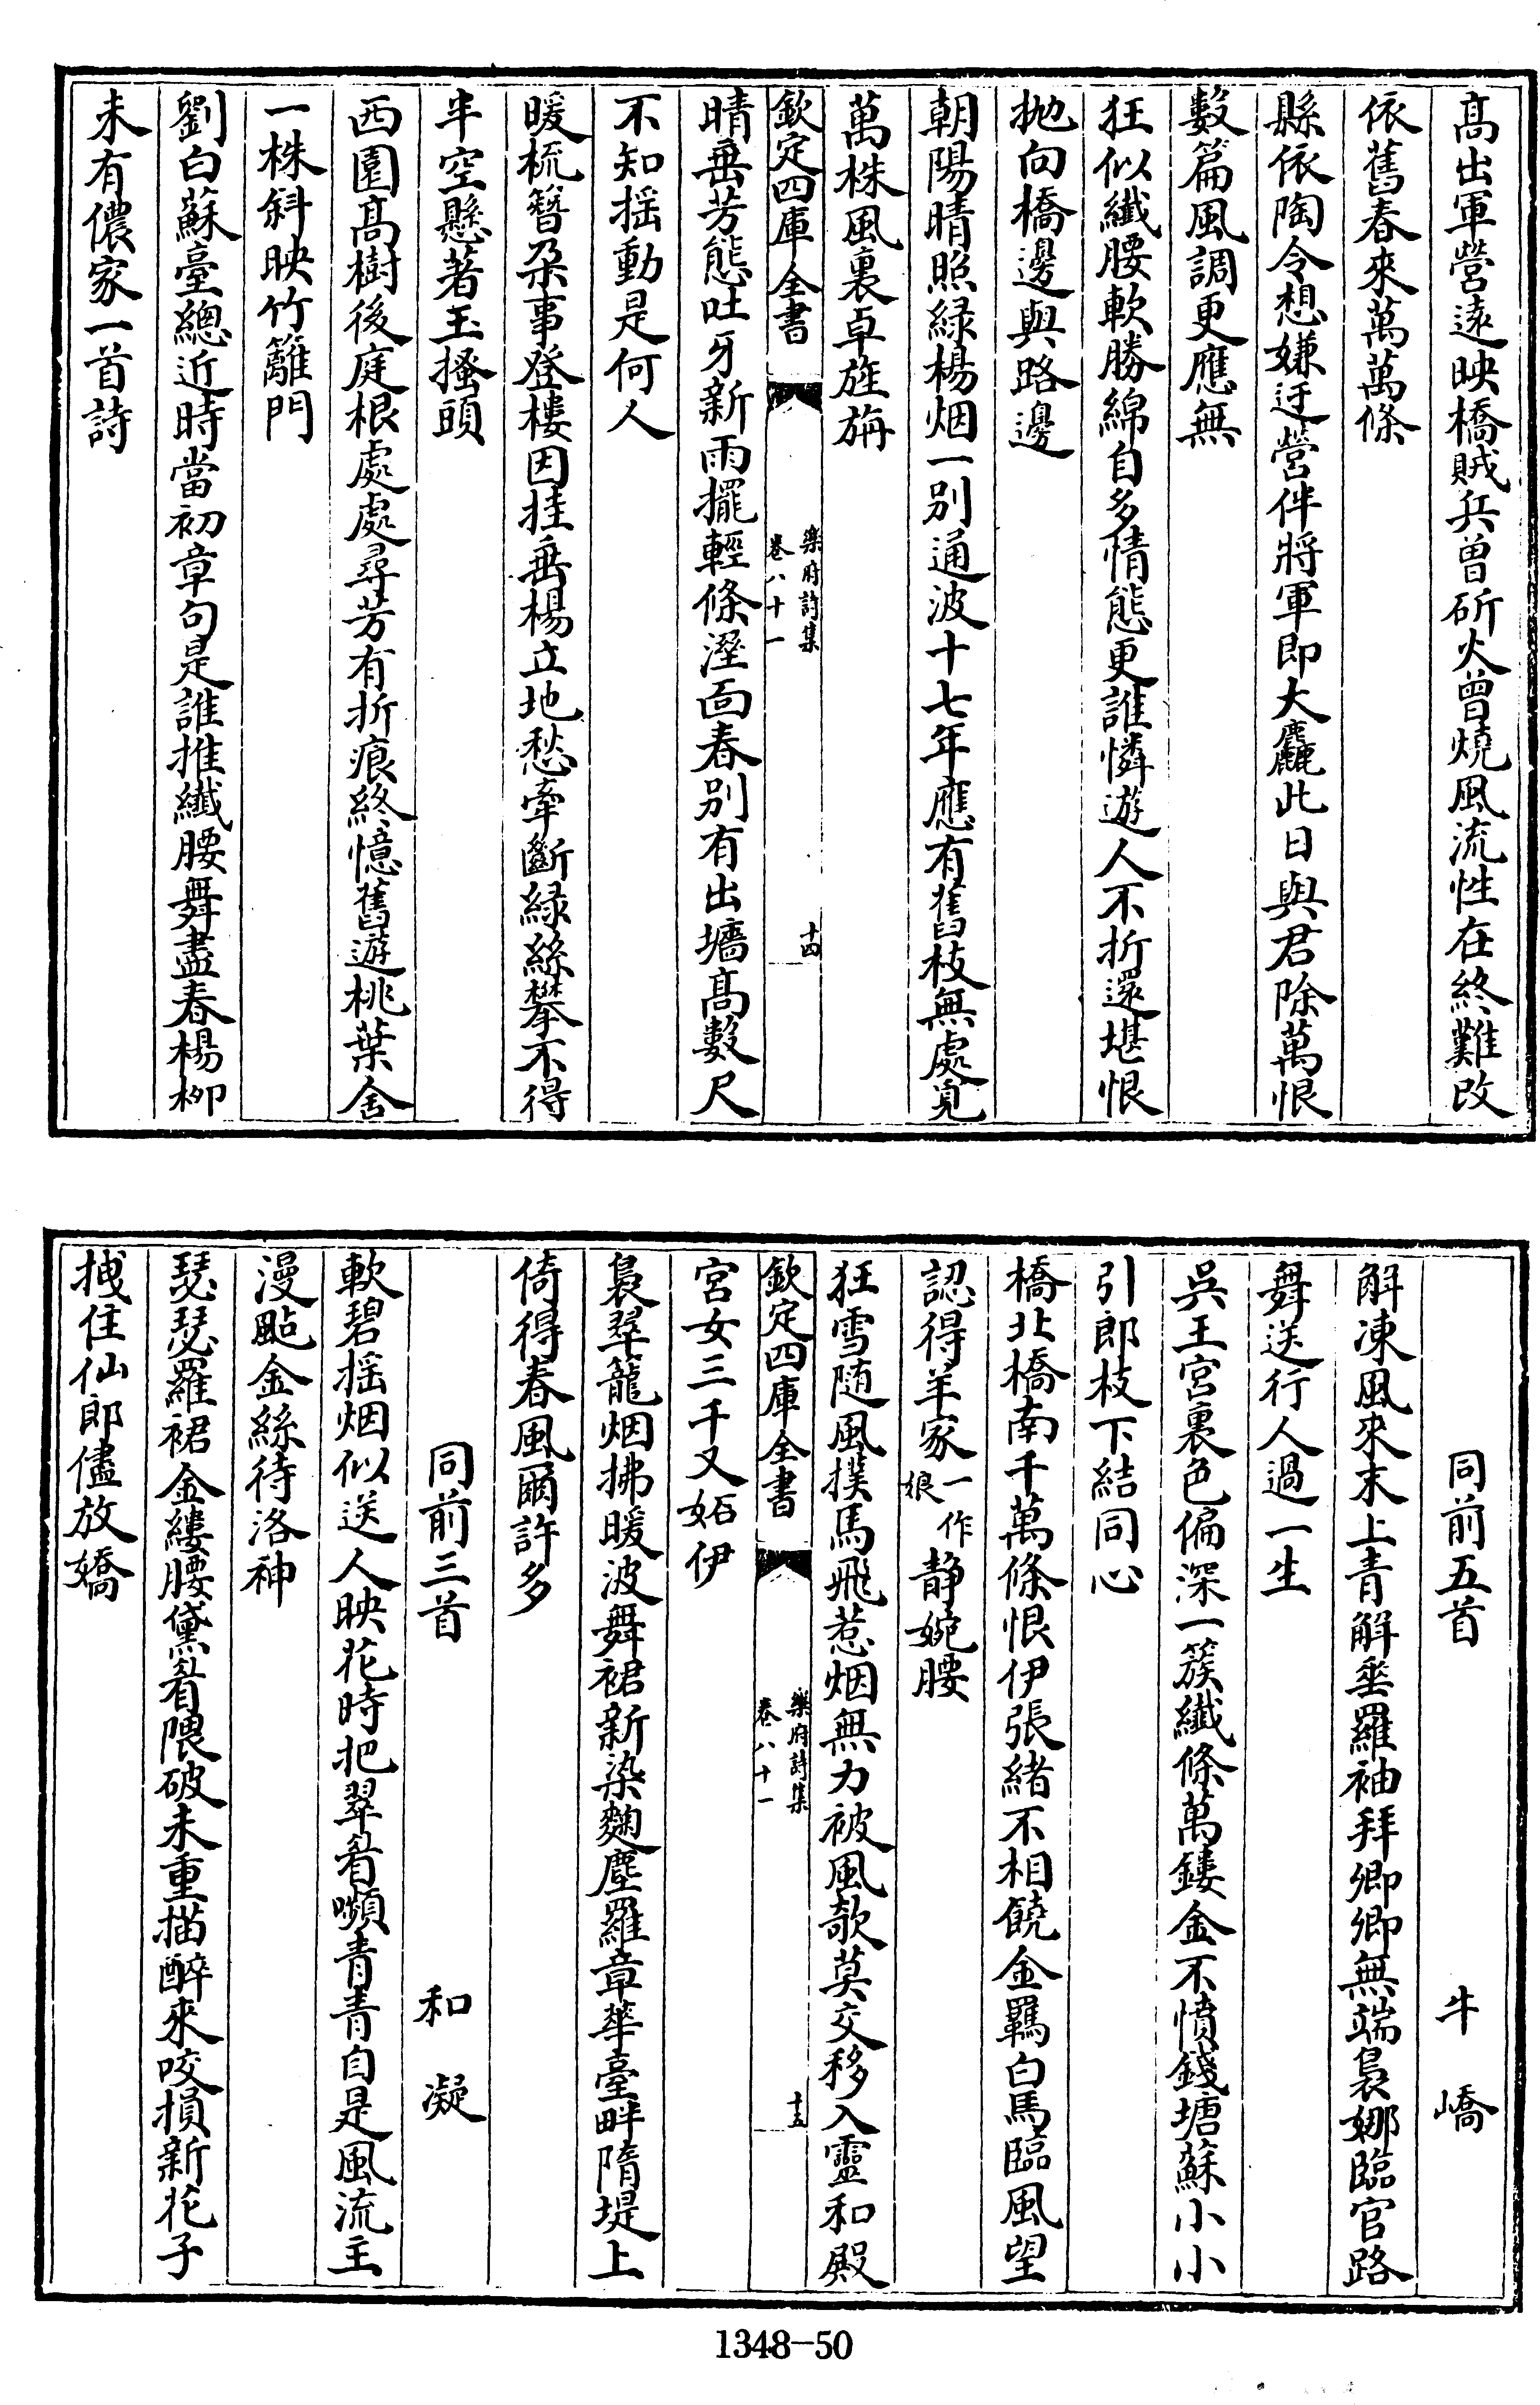 髙出軍營逺映橋賊兵曽斫火曽燒風流性在終難改
依舊春來萬萬條
縣依陶令想嫌迂營伴將軍即大麤此日與君除萬恨
數篇風調更應無
狂似纎腰軟勝綿自多情態更誰憐遊人不折還堪恨
抛向橋邊與路邊
朝陽晴照緑楊烟一别通波十七年應有舊枝無處覓
萬株風裏卓旌旃
欽定四庫全書
樂府詩集
卷八十一
十四
晴垂芳態吐牙新雨擺輕條溼面春别有出墻髙數尺
不知揺動是何人
暖梳簪朶事登樓因挂垂楊立地愁牽斷緑絲攀不得
半空懸著玉搔頭
西園髙樹後庭根處處尋芳有折痕終憶舊遊桃葉舍
一株斜映竹籬門
劉白蘇臺總近時當初章句是誰推纎腰舞盡春楊柳
未有儂家一首詩
同前五首 牛嶠
解凍風來末上青解垂羅袖拜卿卿無端裊娜臨官路
舞送行人過一生
吳王宫裏色偏深一簇纎條萬鏤金不憤錢塘蘇小小
引郎枝下結同心
橋北橋南千萬條恨伊張緒不相饒金羈白馬臨風望
認得羊家一作娘静婉腰
狂雪随風撲馬飛惹烟無力被風欹莫交移入靈和殿
欽定四庫全書
樂府詩集
卷八十一
十五
宫女三千又妬伊
裊翠籠烟拂暖波舞裙新染麴塵羅章華臺畔隋堤上
倚得春風爾許多
同前三首 和凝
軟碧揺烟似送人映花時把翠眉嚬青青自是風流主
漫颭金絲待洛神
瑟瑟羅裙金縷腰黛眉隈破未重描醉來咬損新花子
拽住仙郎儘放嬌
1348-50